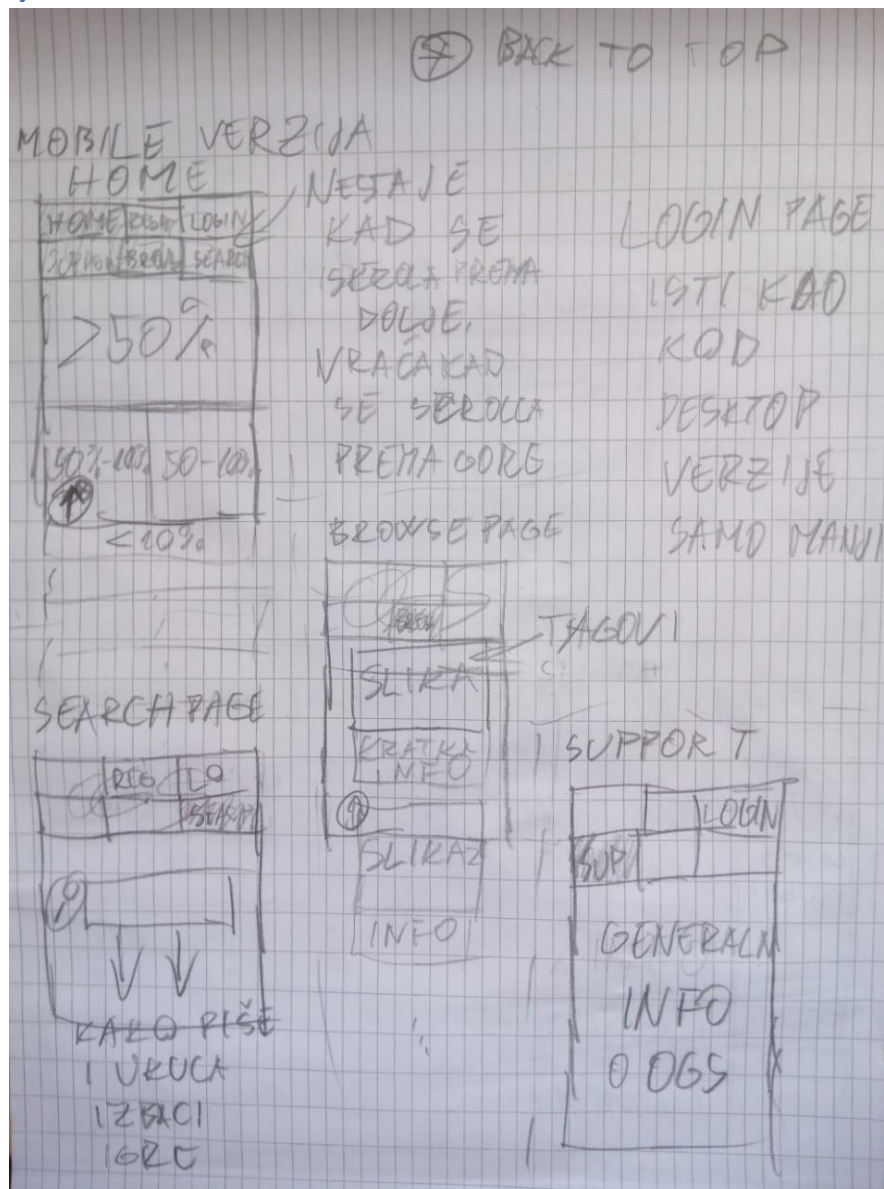 BACK TO TOP
MOBILE VERZIJA
HOME
HOME LOGIN
SEARCH
>50%
50-100%
<10%
NESTAJE
KAD SE
SKROLA PREMA
DOLJE,
VRAĆA KAD
SE SCROLLA
PREMA GORE
LOGIN PAGE
ISTI KAO
KOD
DESKTOP
VERZIJE
SAMO MANJI
BROWSE PAGE
TAGOVI
SLIKA
KRATKA
INFO
SLIKA2
INFO
SEARCH PAGE
REG LO
SEARCH
KAKO PIŠE
I UKUCA
IZBACI
IGRE
SUPPORT
LOGIN
SUP
GENERALN
INFO
O OGS